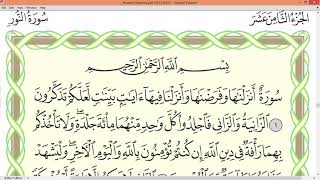 الجُزْءُ الثَّامِنَ عَشَرَ
سُورَةُ النُّورِ
بِسْمِ اللَّهِ الرَّحْمَٰنِ الرَّحِيمِ
سُورَةٌ أَنزَلْنَٰهَا وَفَرَضْنَٰهَا وَأَنزَلْنَا فِيهَآ ءَايَٰتٍۭ بَيِّنَٰتٍ لَّعَلَّكُمْ تَذَكَّرُونَ
١ ٱلزَّانِيَةُ وَٱلزَّانِى فَٱجْلِدُوا۟ كُلَّ وَٰحِدٍ مِّنْهُمَا مِا۟ئَةَ جَلْدَةٍ ۖ وَلَا تَأْخُذْكُم
بِهِمَا رَأْفَةٌ فِى دِينِ ٱللَّهِ إِن كُنتُمْ تُؤْمِنُونَ بِٱللَّهِ وَٱلْيَوْمِ ٱلْءَاخِرِ ۖ وَلْيَشْهَدْ